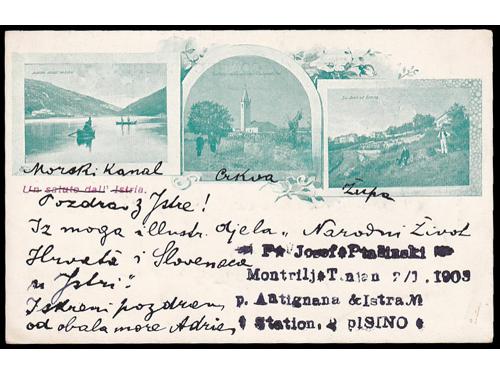 Morski Kanal
Crkva
Župa
Un saluto dall' Istria.
Pozdrav iz Istre!
Iz moga illustr. djela „Narodni Život
Hrvatâ i Slovenaca
u Istri"
Iskreni pozdrav
od obala more Adrie
Josef Ptašinski
Montrilj T. 1903
p. Antignana & Istra. M
Station, PISINO